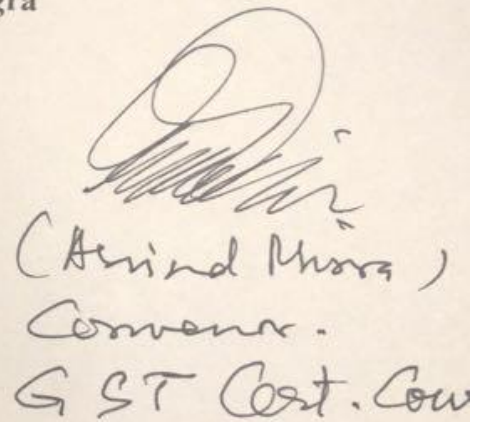 gra
(Arvind Misra)
Convenor.
GST Cert. Cow